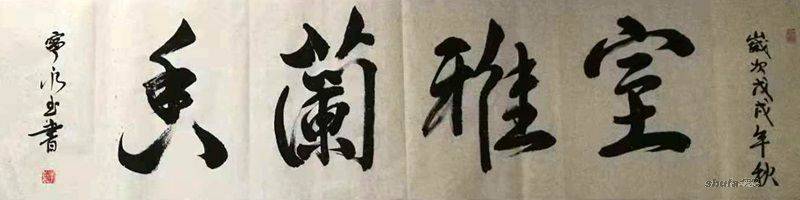 歲次戊戌年秋
室雅蘭香
永玉書
shufa